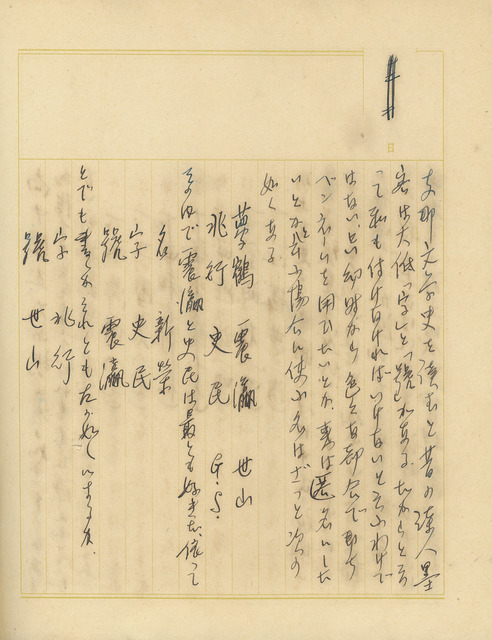 日
支那文学史を讀むと昔の詩人墨
客は大低「字」と「號」がある。だからと云
って私も付けなければいけないと云ふわけで
はない。只幼時から色々な都合で即ち
ペンネームを用ひたいとか、裏は匿名にした
いとか云ふ場合に使ふ名はざっと次の
如くある
夢鶴 震瀛 世山
兆行 史民 G.S.
その内で震瀛と史民は最とも好きだ、依って
名 新榮
字 史民
號 震瀛
とでも書くかそれとも左の如しにするか、
字 兆行
號 世山